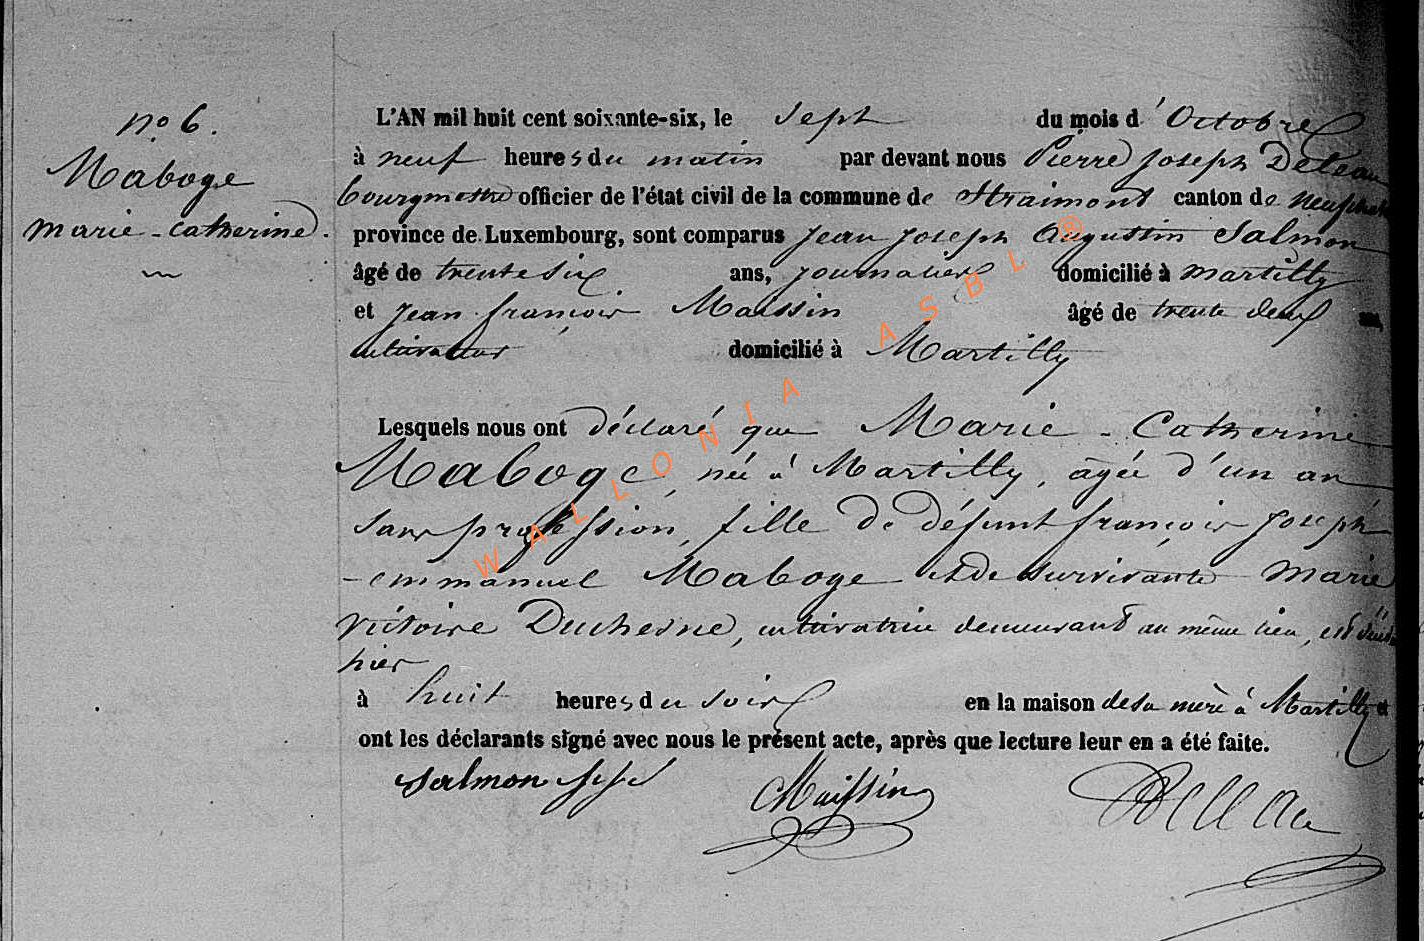 n° 6.
Maboge
Marie-Catherine.
L'AN mil huit cent soixante-six, le sept du mois d'Octobre
à neuf heures du matin par devant nous Pierre Joseph
bourgmestre officier de l'état civil de la commune de Straimont canton de
province de Luxembourg, sont comparus Jean Joseph Augustin Salmon
âgé de trente six ans, journalier domicilié à Martilly
et Jean françois Maissin âgé de trente deux
cultivateur domicilié à Martilly
Lesquels nous ont déclaré que Marie-Catherine
Maboge, née à Martilly, âgée d'un an
sans profession, fille de défunt françois Joseph
-emmanuel Maboge et de survivante Marie
Victoire Duchesne, cultivatrice demeurant au même lieu, est
hier
à huit heures du soir en la maison de sa mère à Martilly
ont les déclarants signé avec nous le présent acte, après que lecture leur en a été faite.
Salmon Maissin
WALLONIA ASBL ®